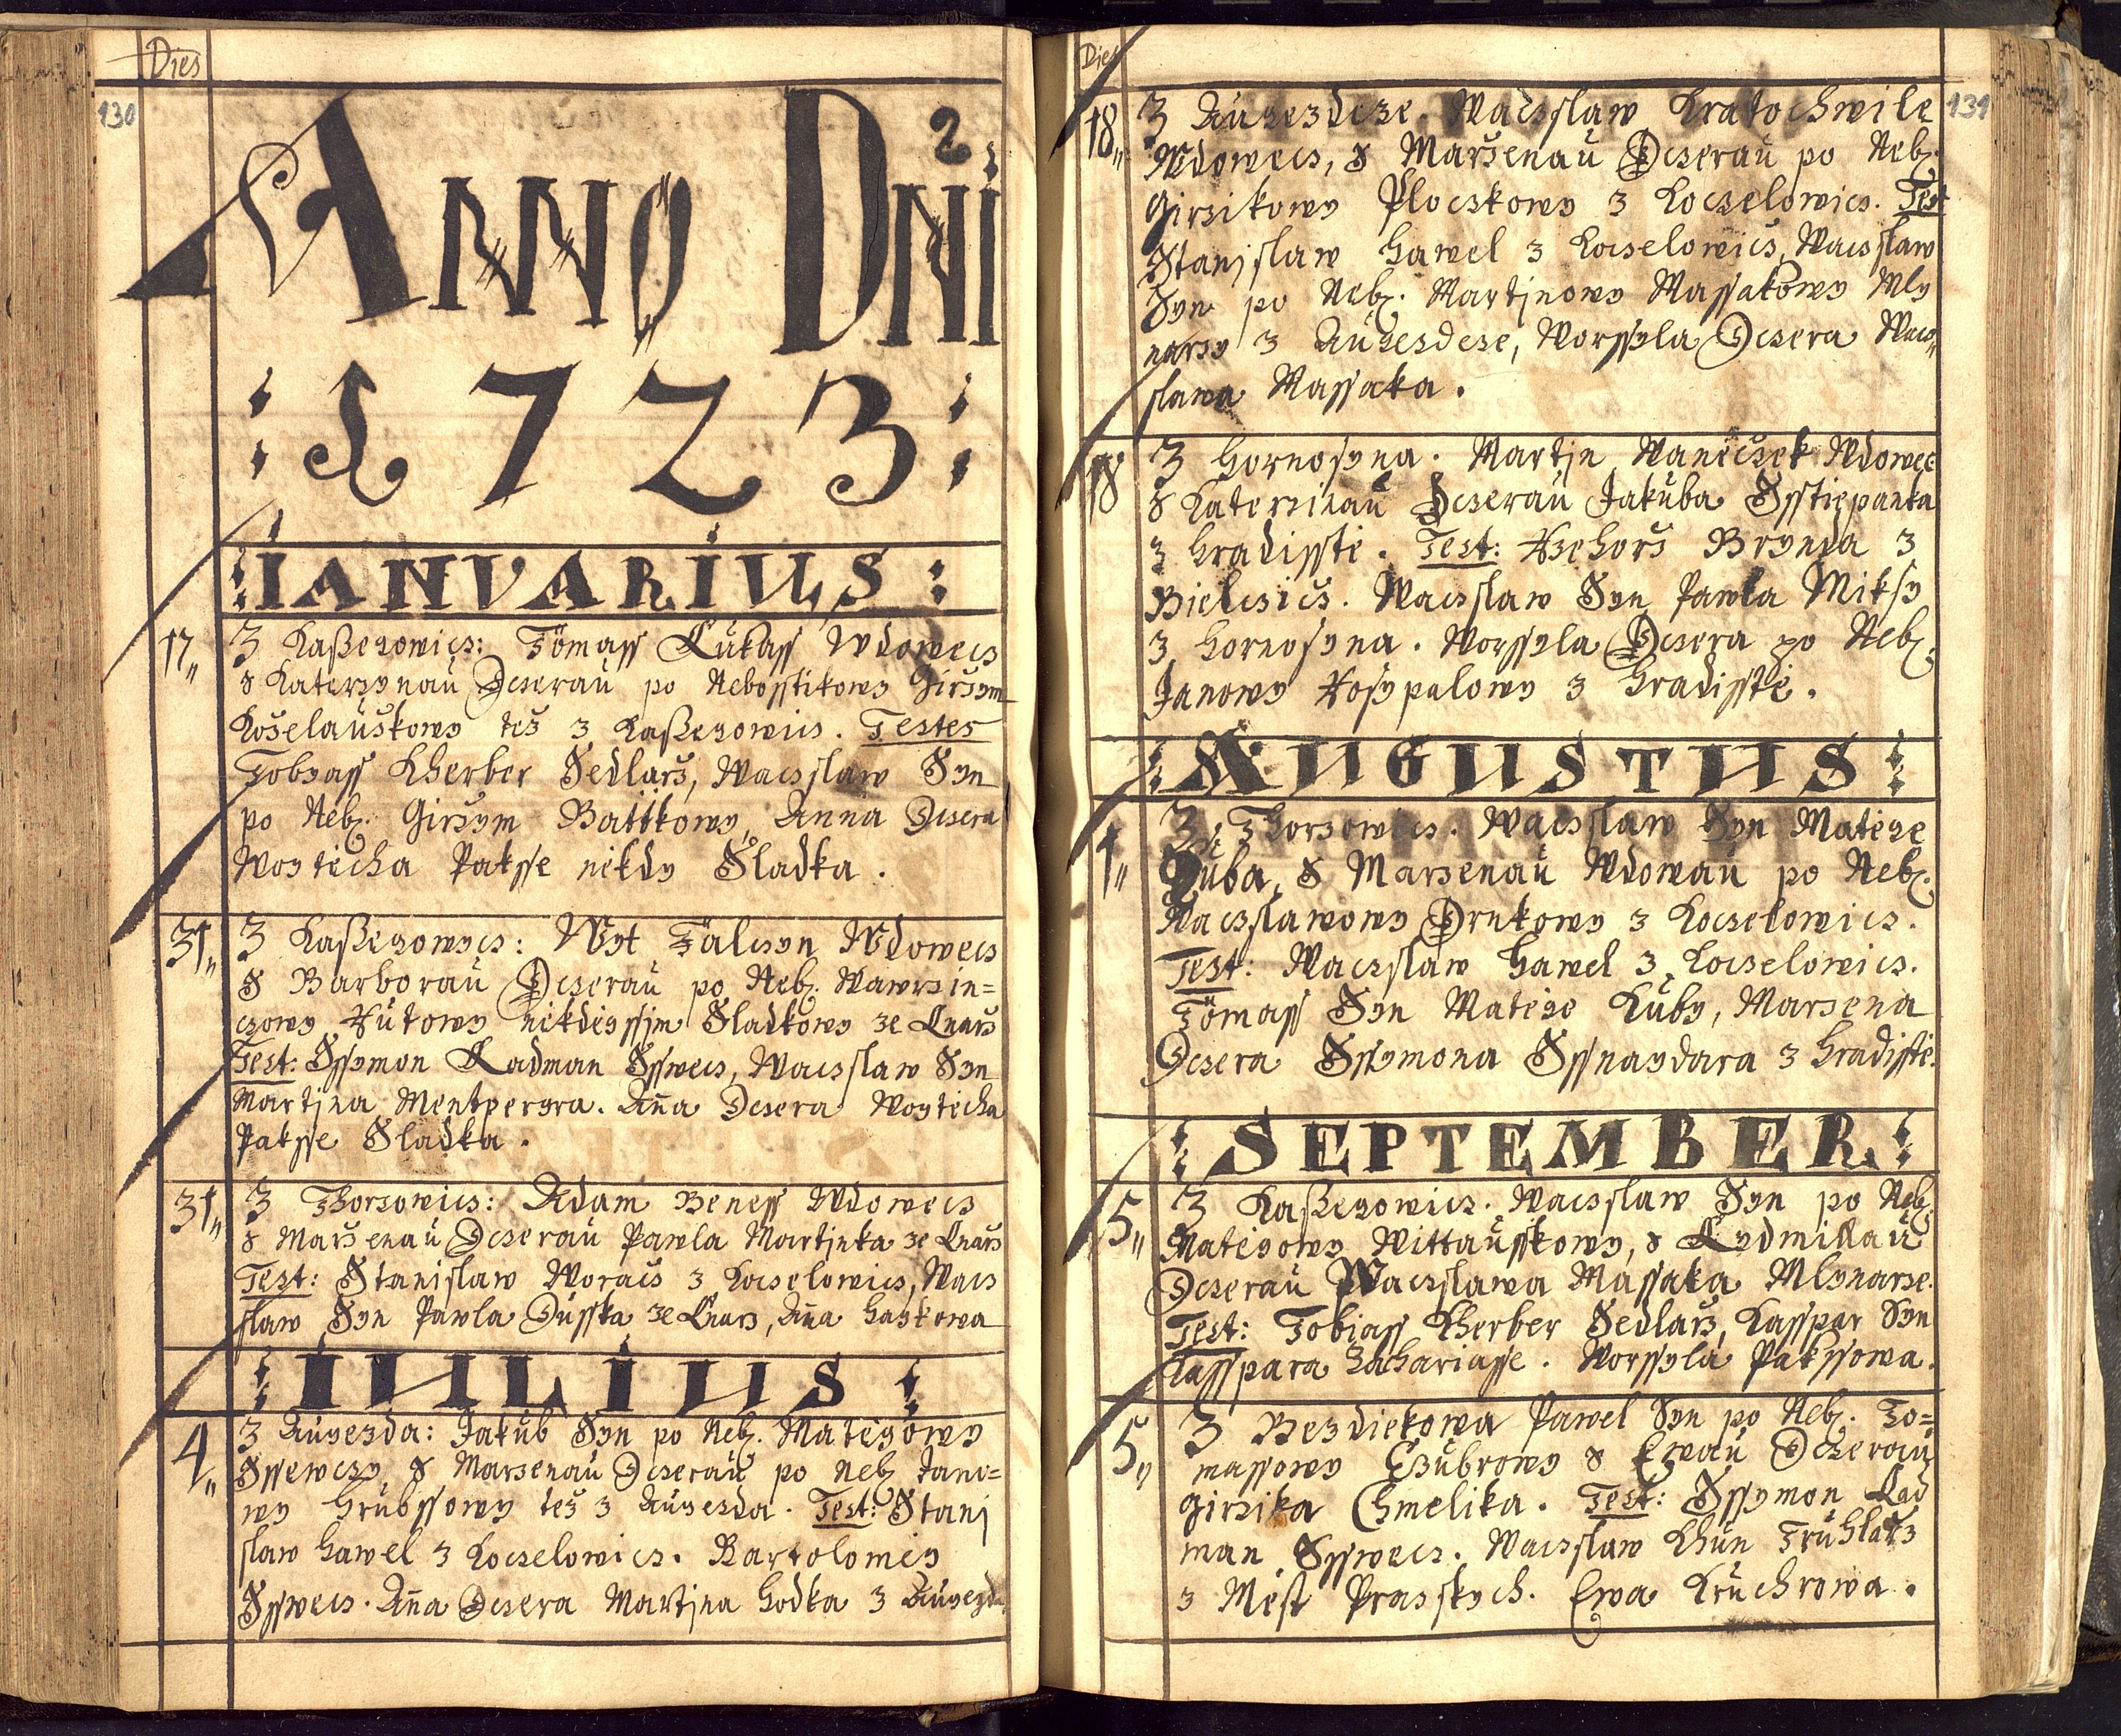 Dies
130
ANNO DNI
1723
IANUARIUS
17 Z Kaßegowicz: Tomass Lukass Wdowecz
s Katerzynau Dczerau po Nebosstikowy Girzym
Koželauskowy též z Kaßegowicz. Testes
Tobyass Kherber Sedlarž, Waczslaw Syn
po Neb. Girzym Battkowy, Anna Dczera
Woytěcha Paksse někdy Sladka.
31 Z Kaßegowycz: Wyt Falczyn Wdowecz
s Barborau Dczerau po Neb. Wawrzin=
czowy Kutowy někdeyssjm Sladkowy ze Lnarž
Test: Ssymon Ladman Sswecz, Waczslaw Syn
Martjna Mentpergra. Ana Dczera Woytěcha
Paksse Sladka.
31 Z Thorzowicz: Adam Beness Wdowecz
s Marženau Dczerau Pawla Martjnka ze Lnarž
Test: Stanislaw Woracž z Koczelowicz, Wacz
slaw Syn Pawla Dusska ze Lnarž, Ana Haykowa
IULIUS
4 Z Augezda: Jakub Syn po Neb. Matěgowy
Ssewczy, s Marzenau Dczerau po Neb. Jano=
wy Hrubssowy též z Augezda. Test: Stanj
slaw Hawel z Koczelowicz. Bartolomeg
Sswecz. Ana Dczera Martjna Hodka z Augezda
Dies
131
18 Z Augezdcze. Waczslaw Kratochwile
Wdowecz, s Marženau Dczerau po Neb.
Girzikowy Ploczkowy z Koczelowicz. Test
Stanjslaw Hawel z Koczelowicz, Waczslaw
Syn po Neb. Martjnowy Massakowy Mly
narzy z Augezdcze, Worssyla Dczera Wacz
slawa Massaka.
18 Z Hornosyna. Martjn Waněczek Wdowec
s Katerzinau Dczerau Jakuba Sstiepanka
z Hradisstě. Test: Rzehorž Brynda z
Bielczicz. Waczslaw Syn Pawla Miksy
z Hornosyna. Worssyla Dczera po Neb.
Janowy Kosypalowy z Hradisstě.
AUGUSTUS
1 Z Thorzowicz. Waczslaw Syn Matěge
Kuba, s Marzenau Wdowau po Neb.
Waczslawowy Drnkowy z Koczelowicz.
Test: Waczslaw Hawel z Koczelowicz.
Tomass Syn Matěge Kuby, Marzena
Dczera Ssymona Ssnaydara z Hradisstě.
SEPTEMBER
5 Z Kaßegowicz. Waczslaw Syn po Neb.
Matěgowy Wittausskowy, s Lydmillau
Dczerau Waczslawa Massaka Mlynarze.
Test: Tobiass Kherber Sedlarž, Kasspar Syn
Kasspara Zachariasse. Worssyla Pakssowa.
5 Z Bezdiekowa Pawel Syn po Neb. To=
massowy Czubrowy s Ewau Dczerau
Girzika Chmelika. Test: Ssymon Lad
man Sswecz. Waczslaw Khun Truhlařz
z Měst Prazskych. Ewa Kruchrowa.